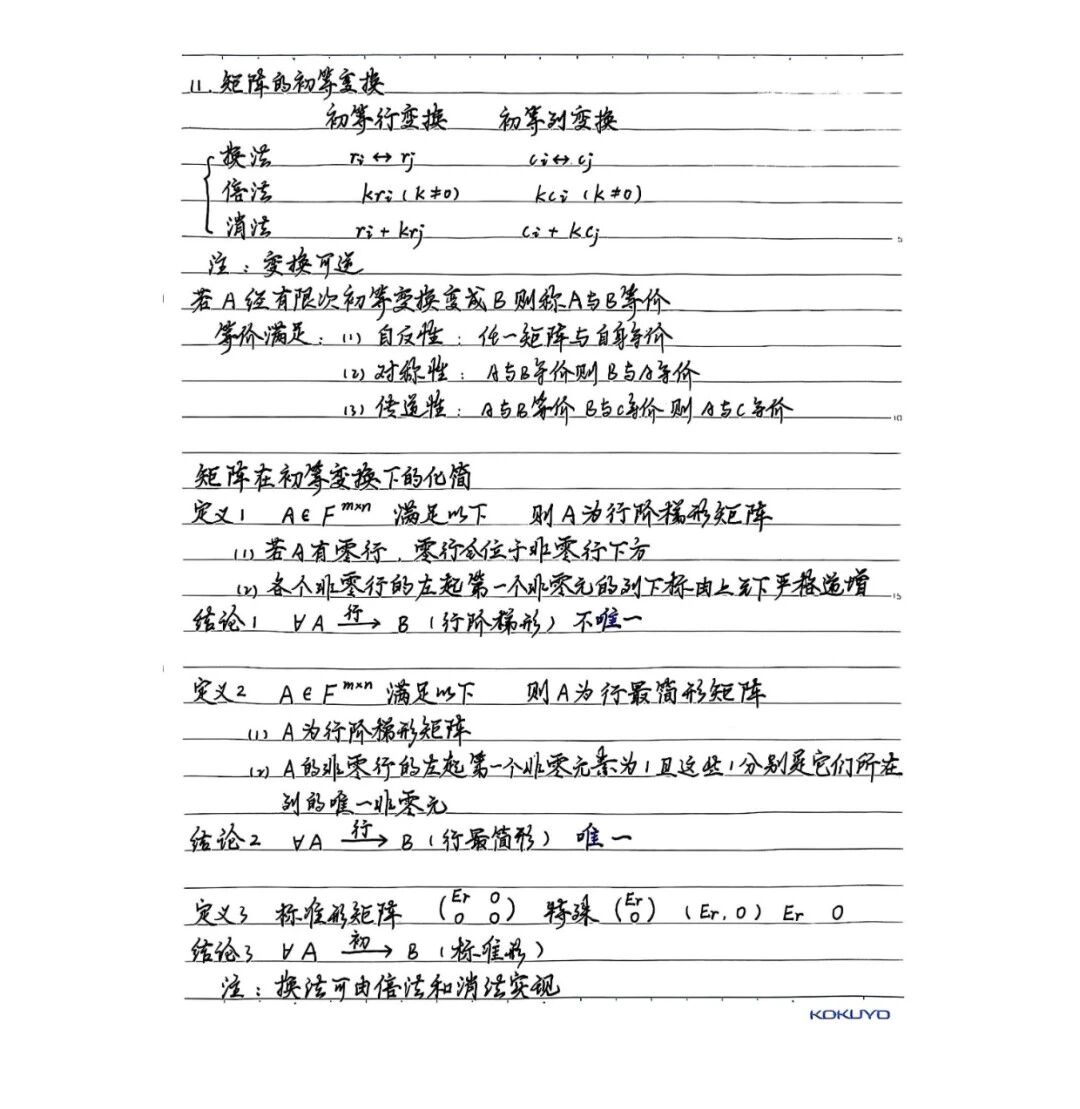 11. 矩阵的初等变换
初等行变换 初等列变换
换法 ri↔rj ci↔cj
倍法 kri (k≠0) kci (k≠0)
消法 ri+krj ci+kcj
5
注：变换可逆
若A经有限次初等变换变成B则称A与B等价
等价满足：(1) 自反性：任一矩阵与自身等价
(2) 对称性：A与B等价则B与A等价
(3) 传递性：A与B等价 B与C等价 则 A与C等价
10
矩阵在初等变换下的化简
定义1 A∈F^{m×n} 满足以下 则A为行阶梯形矩阵
(1) 若A有零行，零行全位于非零行下方
(2) 各个非零行的左起第一个非零元的列下标由上至下严格递增
15
结论1 ∀A \xrightarrow{行} B (行阶梯形) 不唯一
定义2 A∈F^{m×n} 满足以下 则A为行最简形矩阵
(1) A为行阶梯形矩阵
(2) A的非零行的左起第一个非零元素为1且这些1分别是它们所在
列的唯一非零元
结论2 ∀A \xrightarrow{行} B (行最简形) 唯一
定义3 标准形矩阵 \begin{pmatrix} Er & 0 \\ 0 & 0 \end{pmatrix} 特殊 \begin{pmatrix} Er \\ 0 \end{pmatrix} (Er, 0) Er 0
结论3 ∀A \xrightarrow{初} B (标准形)
注：换法可由倍法和消法实现
KOKUYO